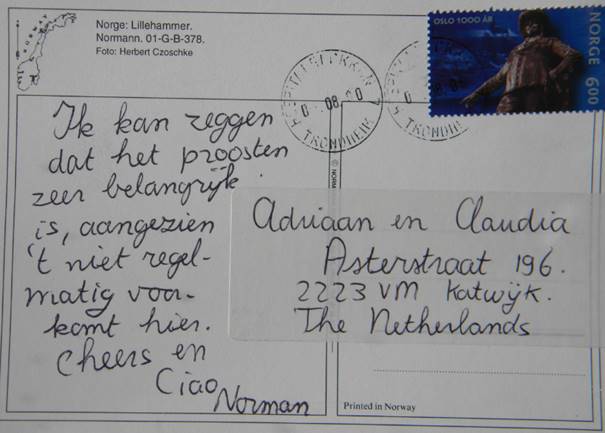 Norge: Lillehammer.
Normann. 01-G-B-378.
Foto: Herbert Czoschke
OSLO 1000 ÅR
NORGE 6.00
TRONDHEIM
08.00
TRONDHEIM
Ik kan zeggen
dat het proosten
zeer belangrijk
is, aangezien
't niet regel-
matig voor-
komt hier.
Cheers en
Ciao
Norman
© NORM
Adriaan en Claudia
Asterstraat 196.
2223 VM Katwijk.
The Netherlands
Printed in Norway